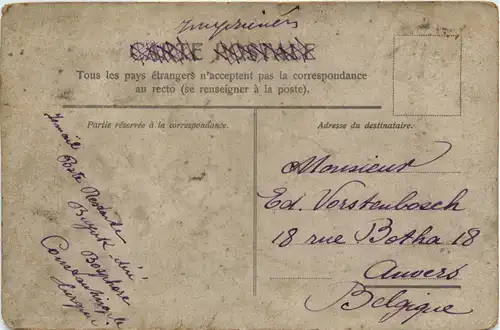 Imprimés
CARTE POSTALE
Tous les pays étrangers n'acceptent pas la correspondance
au recto (se renseigner à la poste).
Partie réservée à la correspondance.
Adresse du destinataire.
Ismail
Poste Restante
Buyuk-déré
Bosphore
Constantinople
Turquie
Monsieur
Ed. Vorstenbosch
18 rue Botha 18
Anvers
Belgique